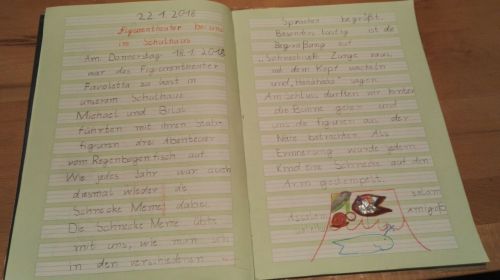 22.1.2018
Figurentheater bei uns
im Schulhaus
Am Donnerstag 18.1.2018
war das Figurentheater
Favoletta zu Gast in
unserem Schulhaus
Michael und Bilal
führten mit ihren Stab-
figuren drei Abenteuer
vom Regenbogenfisch auf.
Wie jedes Jahr war auch
diesmal wieder die
Schnecke Meme dabei.
Die Schnecke Meme übte
mit uns, wie man sich
in den verschiedenen
Sprachen begrüßt.
Besonders lustig ist die
Begrüßung auf
Zunge raus,
mit dem Kopf wackeln
und "Hahahaha" sagen.
Am Schluss durften wir hinter
die Bühne gehen und
uns die Figuren aus der
Nähe betrachten. Als
Erinnerung wurde jedem
Kind eine Schnecke auf den
Arm gestempelt.
salam
amigo